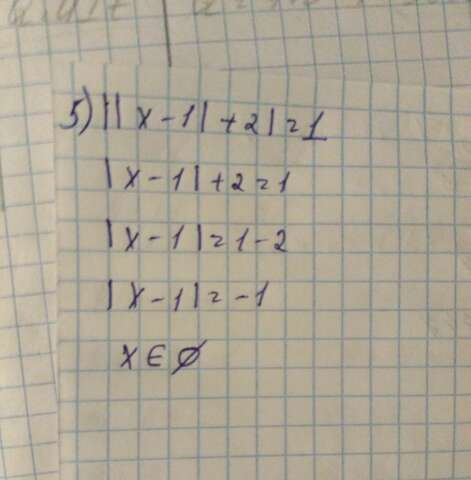 5) ||x-1|+2|=1
|x-1|+2=1
|x-1|=1-2
|x-1|=-1
x∈∅